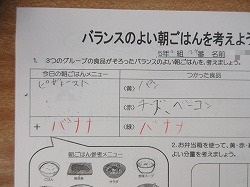 バランスのよい朝ごはんを考えよう
5年 組 番 名前
1. 3つのグループの食品がそろったバランスのよい朝ごはんを、考えましょう。
今日の朝ごはんメニュー
つかった食品
ピザトースト
(黄) パン
(赤) チーズ、ベーコン
+ バナナ
(緑) バナナ
朝ごはん参考メニュー
2. お弁当箱を使って、黄、
よい分量を考えましょう。